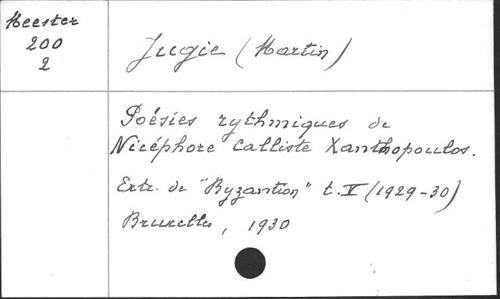 Meester
200
2
Jugie (Martin)
Poésies rythmiques de
Nicéphore Calliste Xanthopoulos.
Extr. de "Byzantion" t. V (1929-30)
Bruxelles, 1930